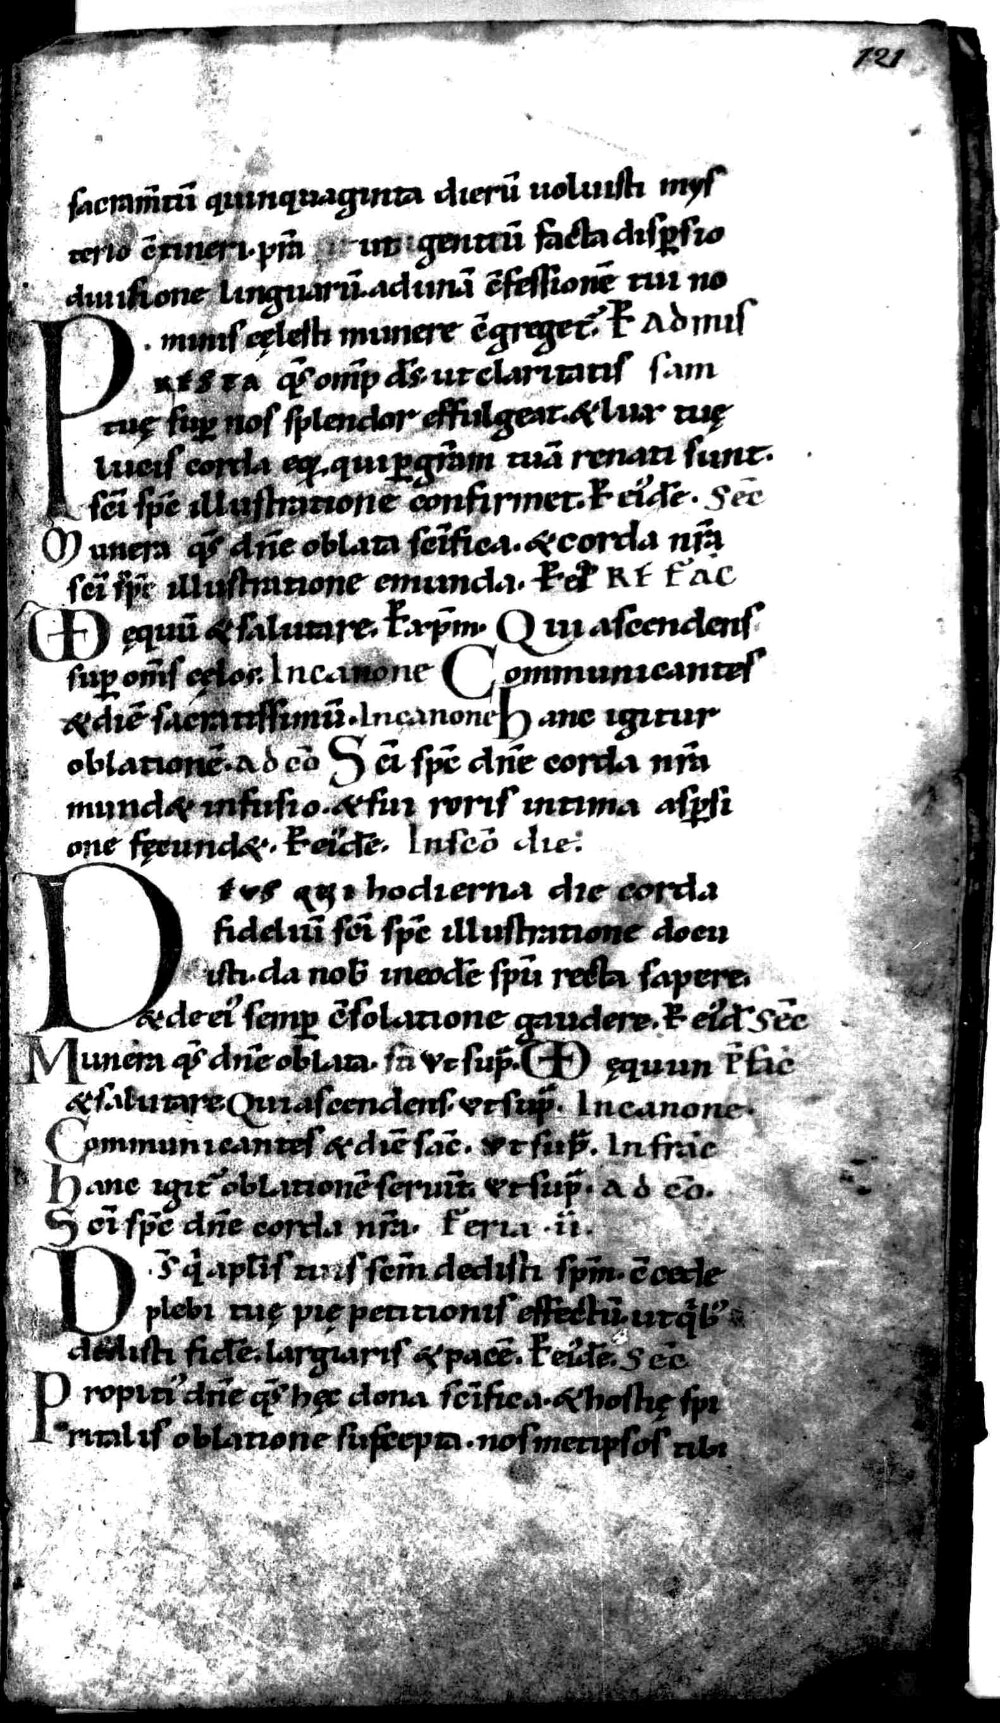 121
sacram̄tū quinquaginta dierū uoluisti mys
terio c̄tineri. p̄ra ut gentiū facta disꝑsio
diuisione linguarū. ad unā c̄fessionē tui no
minis cęlesti munere c̄greget᷑. ꝑ Ad mis
PRESTA q̄s om̄p d̄s. ut claritatis sam
tuę suꝑ nos splendor effulgeat. & lux tuę
lucis corda eoꝝ. qui ꝑ gr̄am tuā renati sunt.
sc̄i sp̄c illustratione confirmet. ꝑ eiꝰdē. Sec̄
Munera q̄s dn̄e oblata sc̄ifica. & corda nr̄a
sc̄i sp̄c illustratione emunda. ꝑ eiꝰ PREFAC
VD ęquū & salutare. ꝑ xp̄m. Qui ascendens
suꝑ om̄s cęlos. In canone Communicantes
& diē sacratissimū. In canone Hanc igitur
oblationē. ad cō Sc̄i sp̄c dn̄e corda nr̄a
mund& infusio. & sui roris intima asꝑsi
one fęcund&. ꝑ eiꝰdē. In sc̄o die.
DEUS QUI hodierna die corda
fideliū sc̄i sp̄c illustratione docu
isti. da nob̄ in eodē sp̄u recta sapere.
& de eiꝰ semꝑ c̄solatione gaudere. ꝑ eiꝰd̄ Sec̄
Munera q̄s dn̄e oblata. sc̄i ut sup̄. VD ęquun P̄fac̄
& salutare. Qui ascendens. ut sup̄. In canone.
Communicantes & diē sac̄. ut sup̄. Infrac̄
Hanc igit᷑ oblationē seruit̄. ut sup̄. ad cō.
Sc̄i sp̄c dn̄e corda nr̄a. Feria .ii.
D̄s q̄ apl̄is tuis sc̄m dedisti sp̄m. c̄cede
plebi tuę pię petitionis effectū. ut q̄bꝰ
dedisti fidē. largiaris & pacē. ꝑ eiꝰdē. Sec̄
Propitiꝰ dn̄e q̄s hęc dona sc̄ifica. & hostię spi
ritalis oblatione suscepta. nosmetipsos tibi